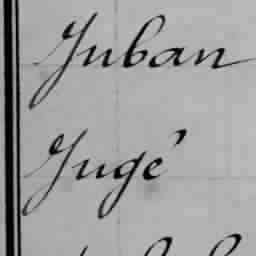 Juban
Jugé